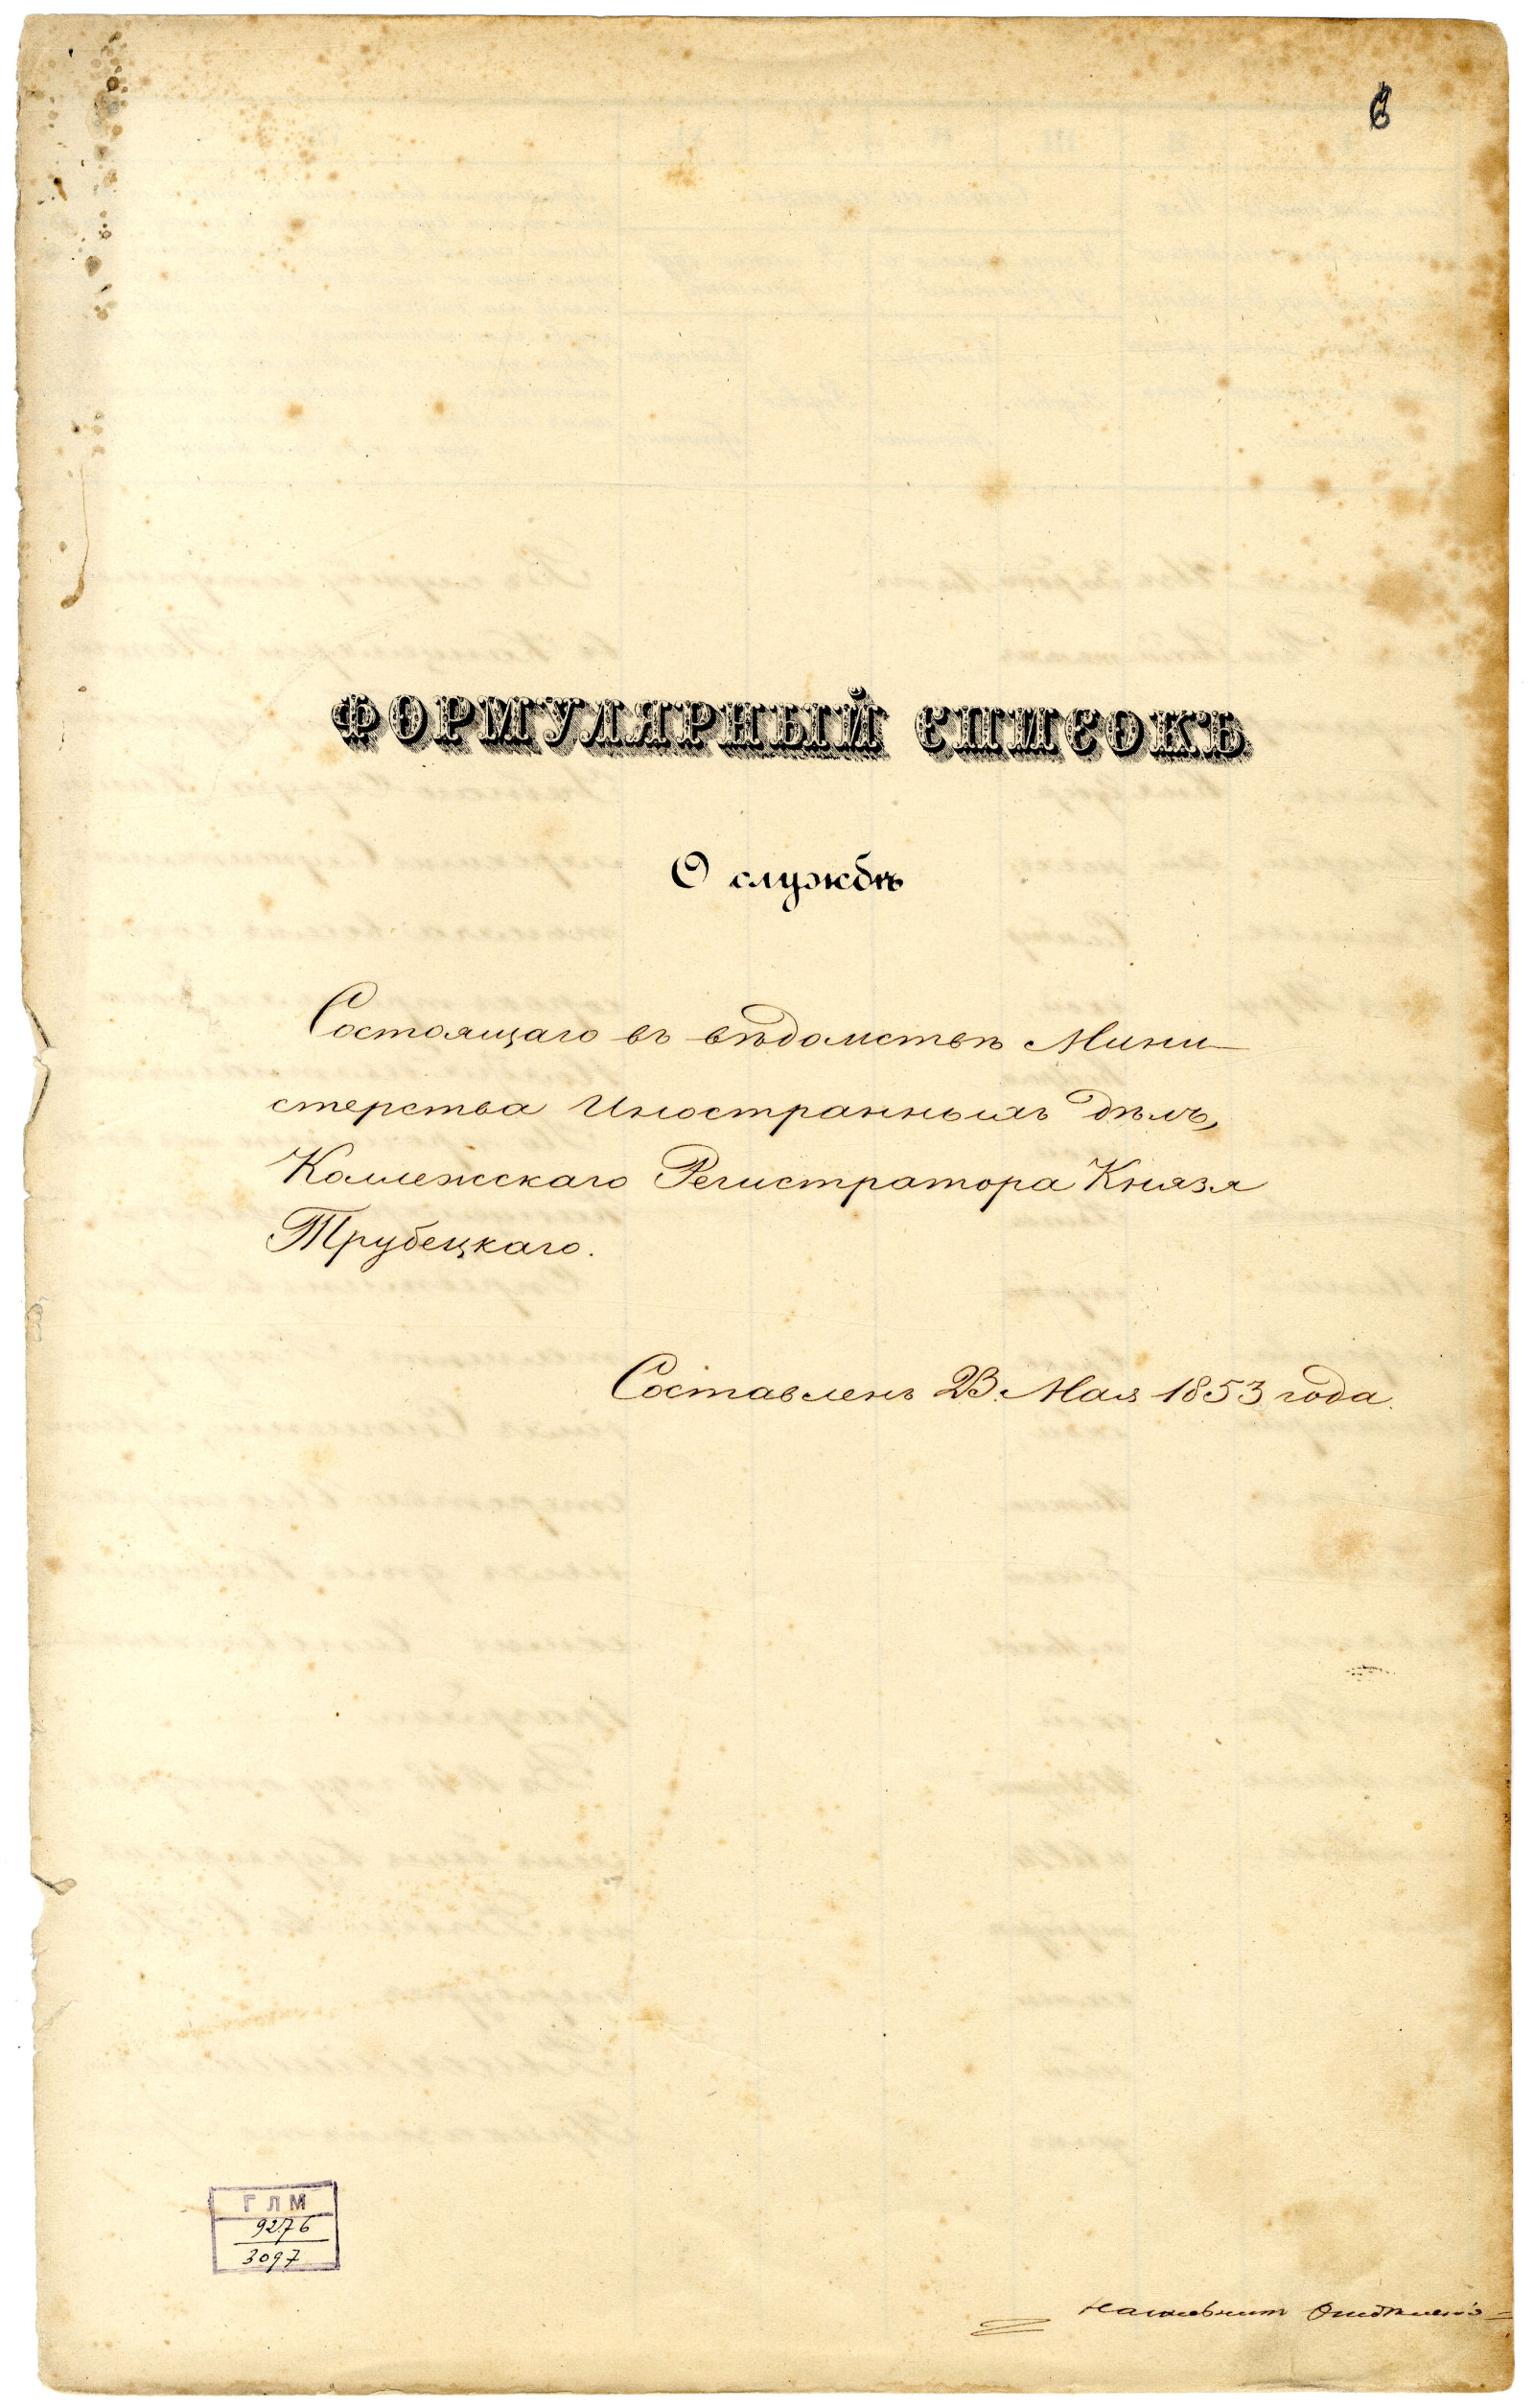 6
ФОРМУЛЯРНЫЙ СПИСОКЪ
О службѣ
Состоящаго въ вѣдомствѣ Мини-
стерства Иностранныхъ дѣлъ,
Коллежскаго Регистратора Князя
Трубецкаго.
Составленъ 23. Мая 1853 года.
ГЛМ
9276
3097